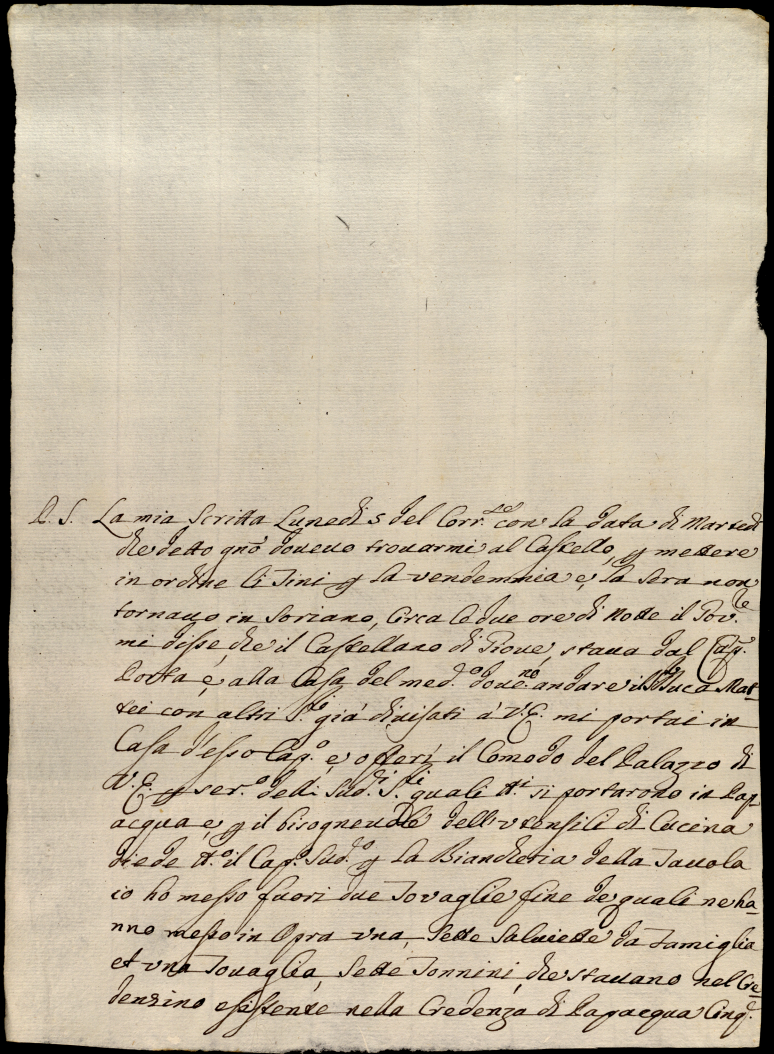 P. S. La mia Scritta Lunedi 5 del Corr.te con la data di Martedi
che detto gnõ doueuo trouarmi al Castello, p mettere
in ordine li Tini p la vendemmia e, la Sera non
tornauo in Soriano, Circa le due ore di Notte il Gov.re
mi disse, che il Castellano di Fioue, staua dal Cap.
Porta e, alla Casa del med.o doue.no andare il Duca Mat-
tei con altri S.ri già diuisati à V. E. mi portai in
Casa d'esso Cap.o e offerì il Comodo del Palazzo di
V. E. p ser.o delli Sud.i S.ri quali si portarono in Pap
acqua e, p il bisogneuole dell'vtensili di Cucina
diede il Cap. Sud.o p La Biancheria della Tauola
io ho messo fuori due Tovaglie fine de quali ne ha-
nno messo in Opra vna, Sette Saluiette da Famiglia
et vna Touaglia, Sette Tonnini, che stauano nel Cre-
denzino esistente nella Credenza di Papacqua Cinq.e